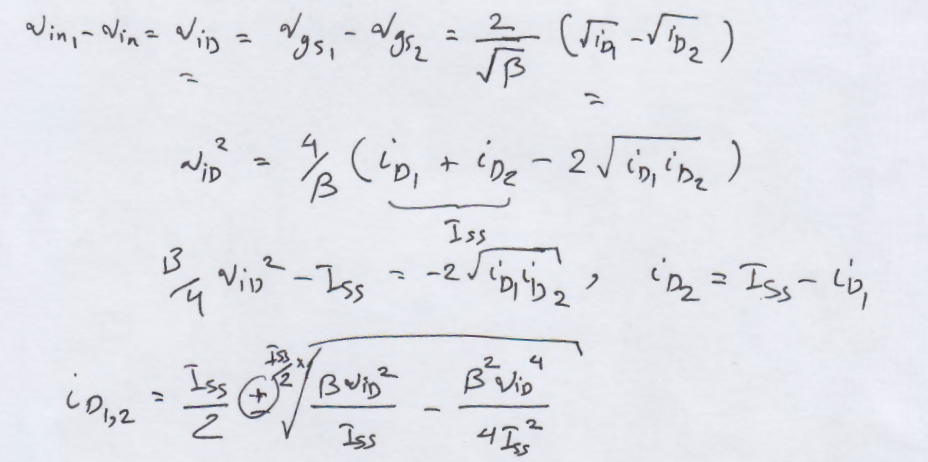 v_in₁ - v_in = v_iD = v_gs₁ - v_gs₂ = 2/√β (√i_D₁ - √i_D₂)
= =
v_iD² = 4/β (i_D₁ + i_D₂ - 2√(i_D₁ i_D₂))
I_SS
β/4 v_iD² - I_SS = -2√(i_D₁ i_D₂) , i_D₂ = I_SS - i_D₁
i_D₁,₂ = I_SS/2 ± I_SS/2 × √(βv_iD²/I_SS - β²v_iD⁴/4I_SS²)